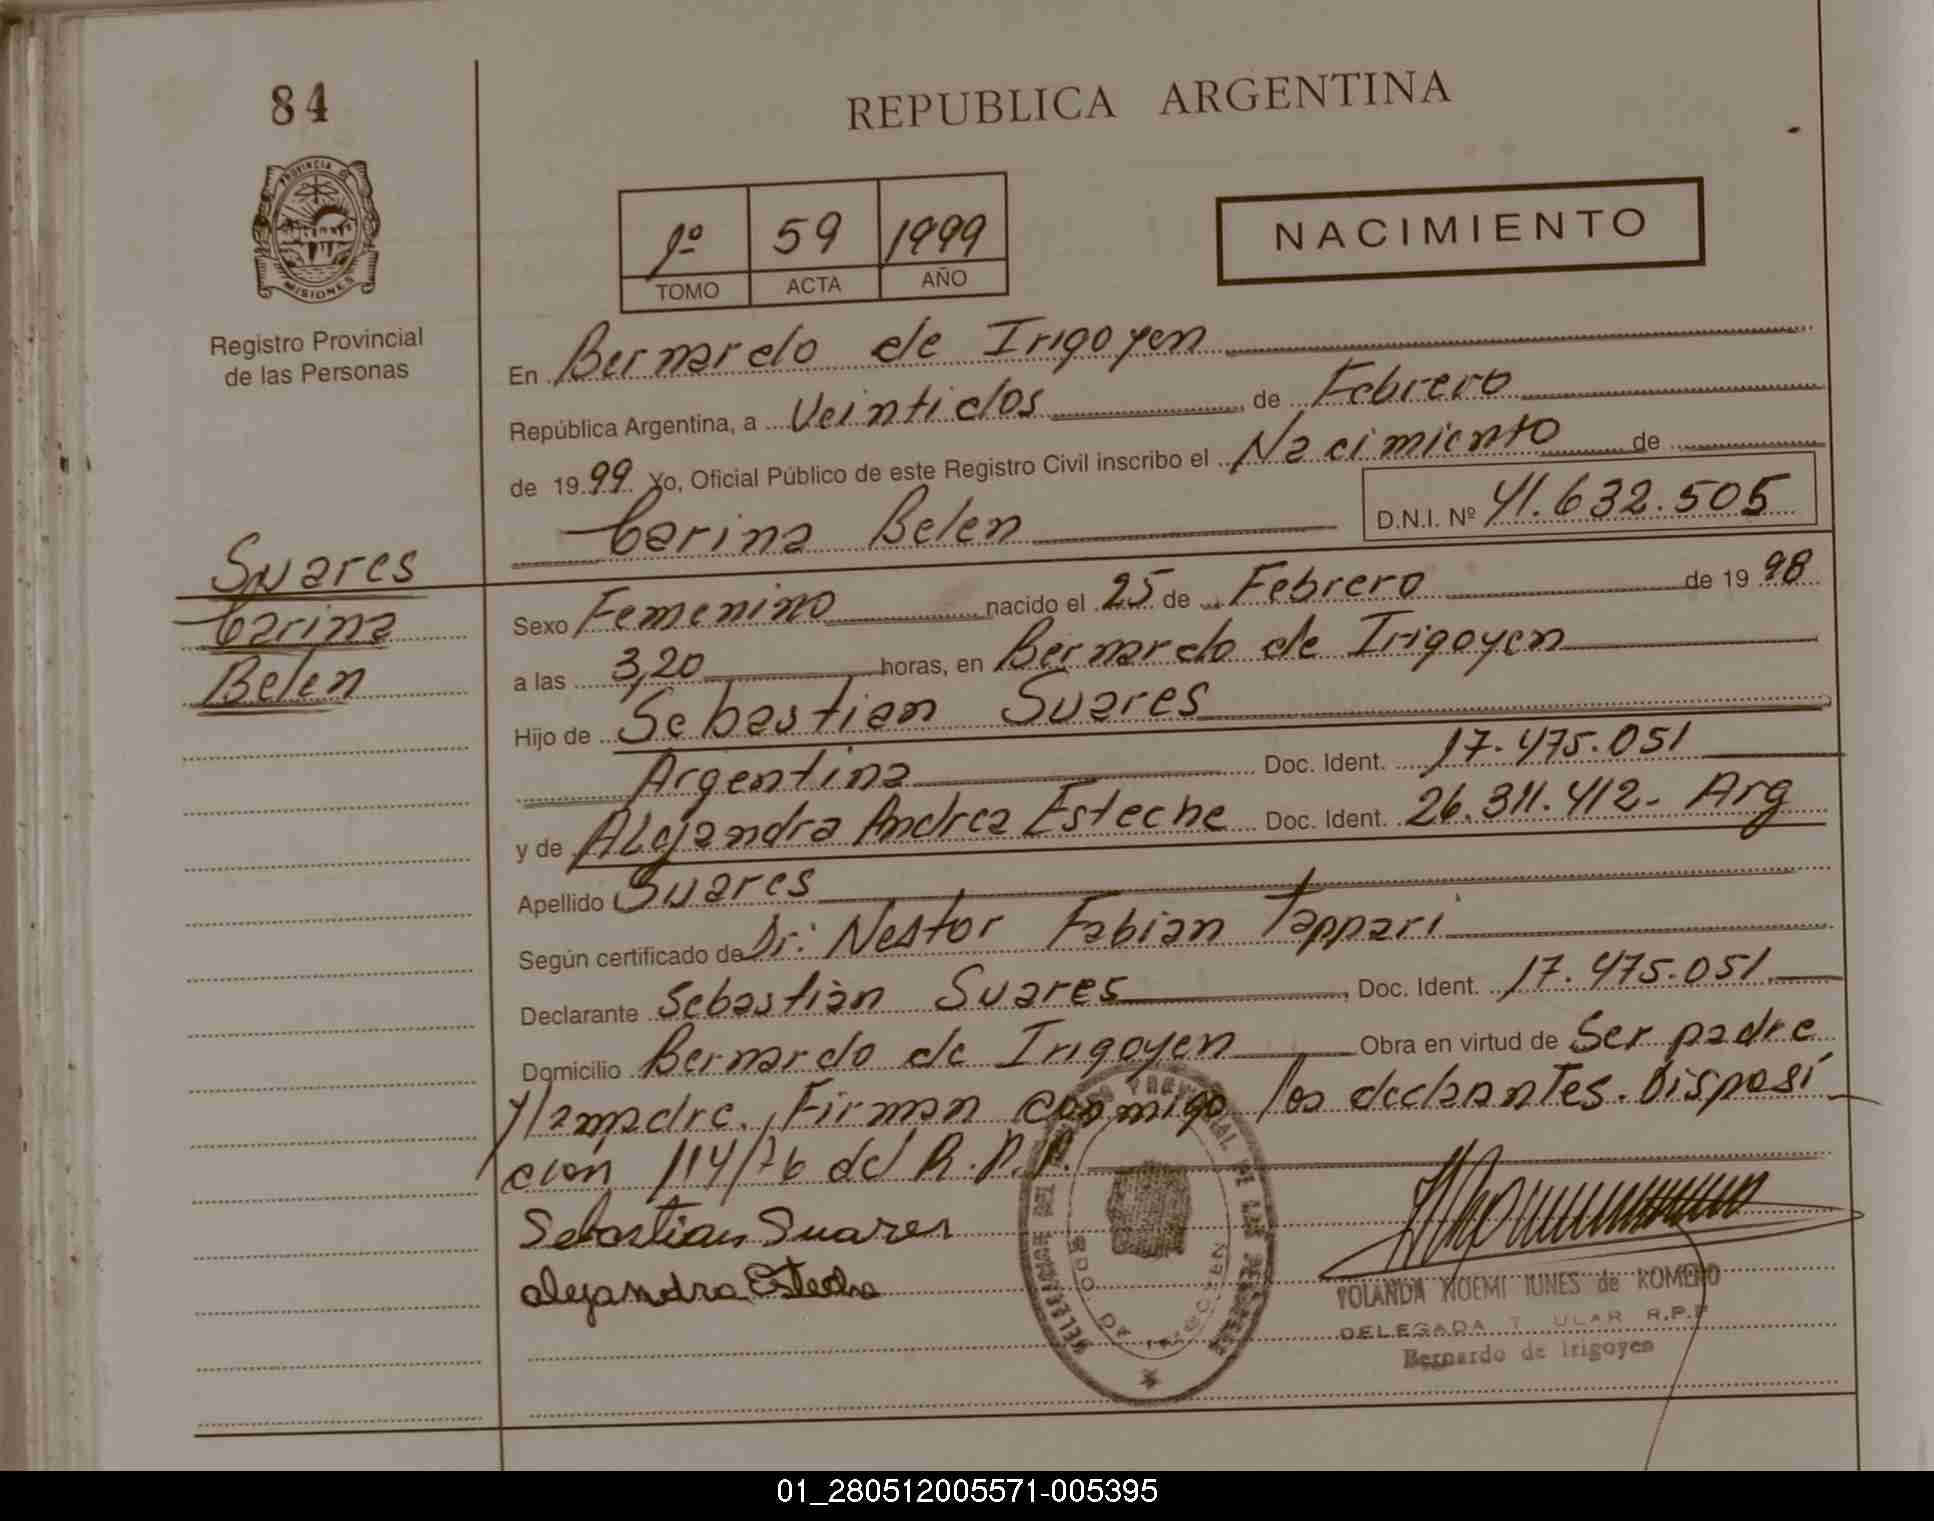 84
REPUBLICA ARGENTINA
PROVINCIA DE
MISIONES
Registro Provincial
de las Personas
1º 59 1999
TOMO ACTA AÑO
NACIMIENTO
En Bernardo de Irigoyen
República Argentina, a Veintidos de Febrero
de 1999 Yo, Oficial Público de este Registro Civil inscribo el Nacimiento de
Carina Belen D.N.I. Nº 41.632.505
Suares
Carina
Belen
Sexo Femenino nacido el 25 de Febrero de 1998
a las 3,20 horas, en Bernardo de Irigoyen
Hijo de Sebastian Suares
Argentina Doc. Ident. 17.475.051
y de Alejandra Andrea Esteche Doc. Ident. 26.311.412- Arg
Apellido Suares
Según certificado de Dr: Nestor Fabian Tappari
Declarante Sebastián Suares, Doc. Ident. 17.475.051
Domicilio Bernardo de Irigoyen Obra en virtud de Ser padre
y la madre. Firman conmigo los declarantes. Disposi
cion 114/76 del R.P.P.
Sebastian Suares
alejandra Esteche
BDO. DE IRIGOYEN
YOLANDA NOEMI IUNES de ROMERO
DELEGADA TITULAR R.P.P
Bernardo de Irigoyen
01_280512005571-005395